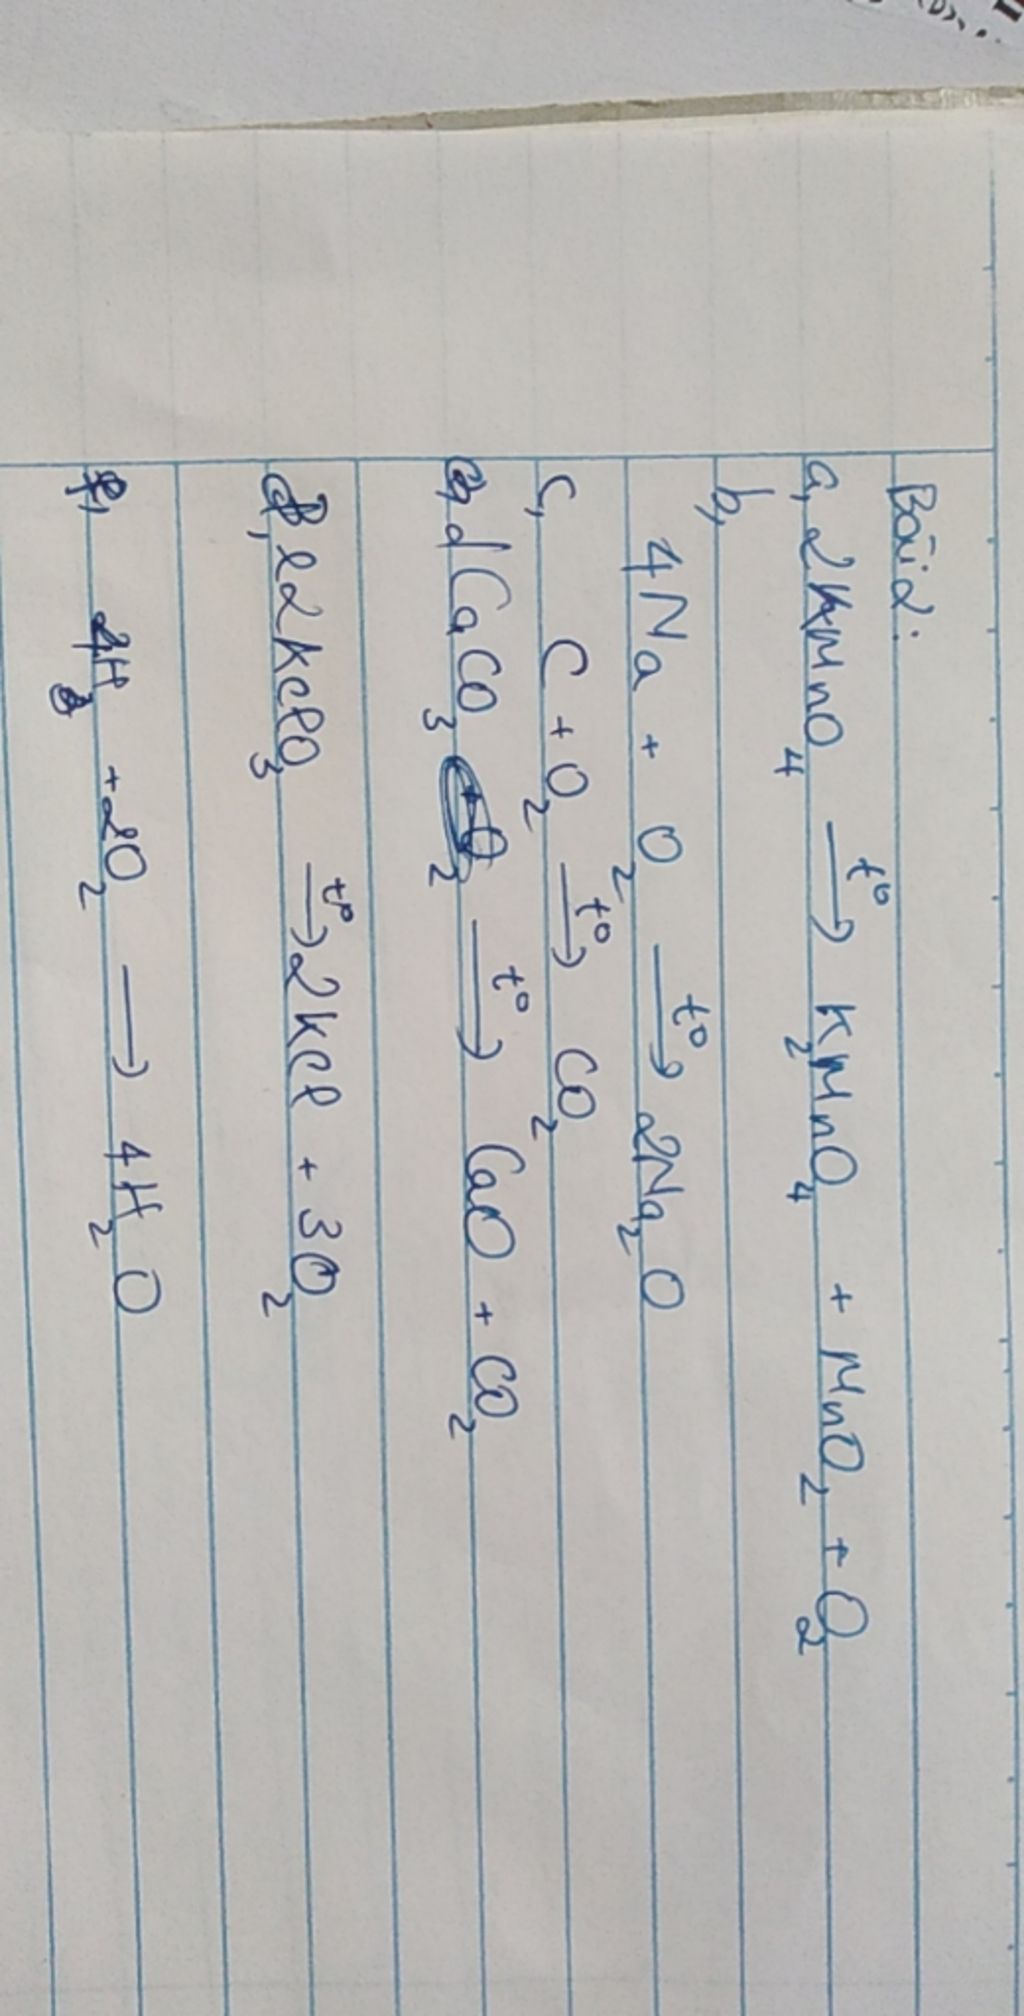 Bài 2:
a, 2KMnO4 t° → K2MnO4 + MnO2 + O2
b,
4Na + O2 t° → 2Na2O
c, C + O2 t° → CO2
d CaCO3 t° → CaO + CO2
e 2KClO3 t° → 2KCl + 3O2
f, 4H + 2O2 → 4H2O